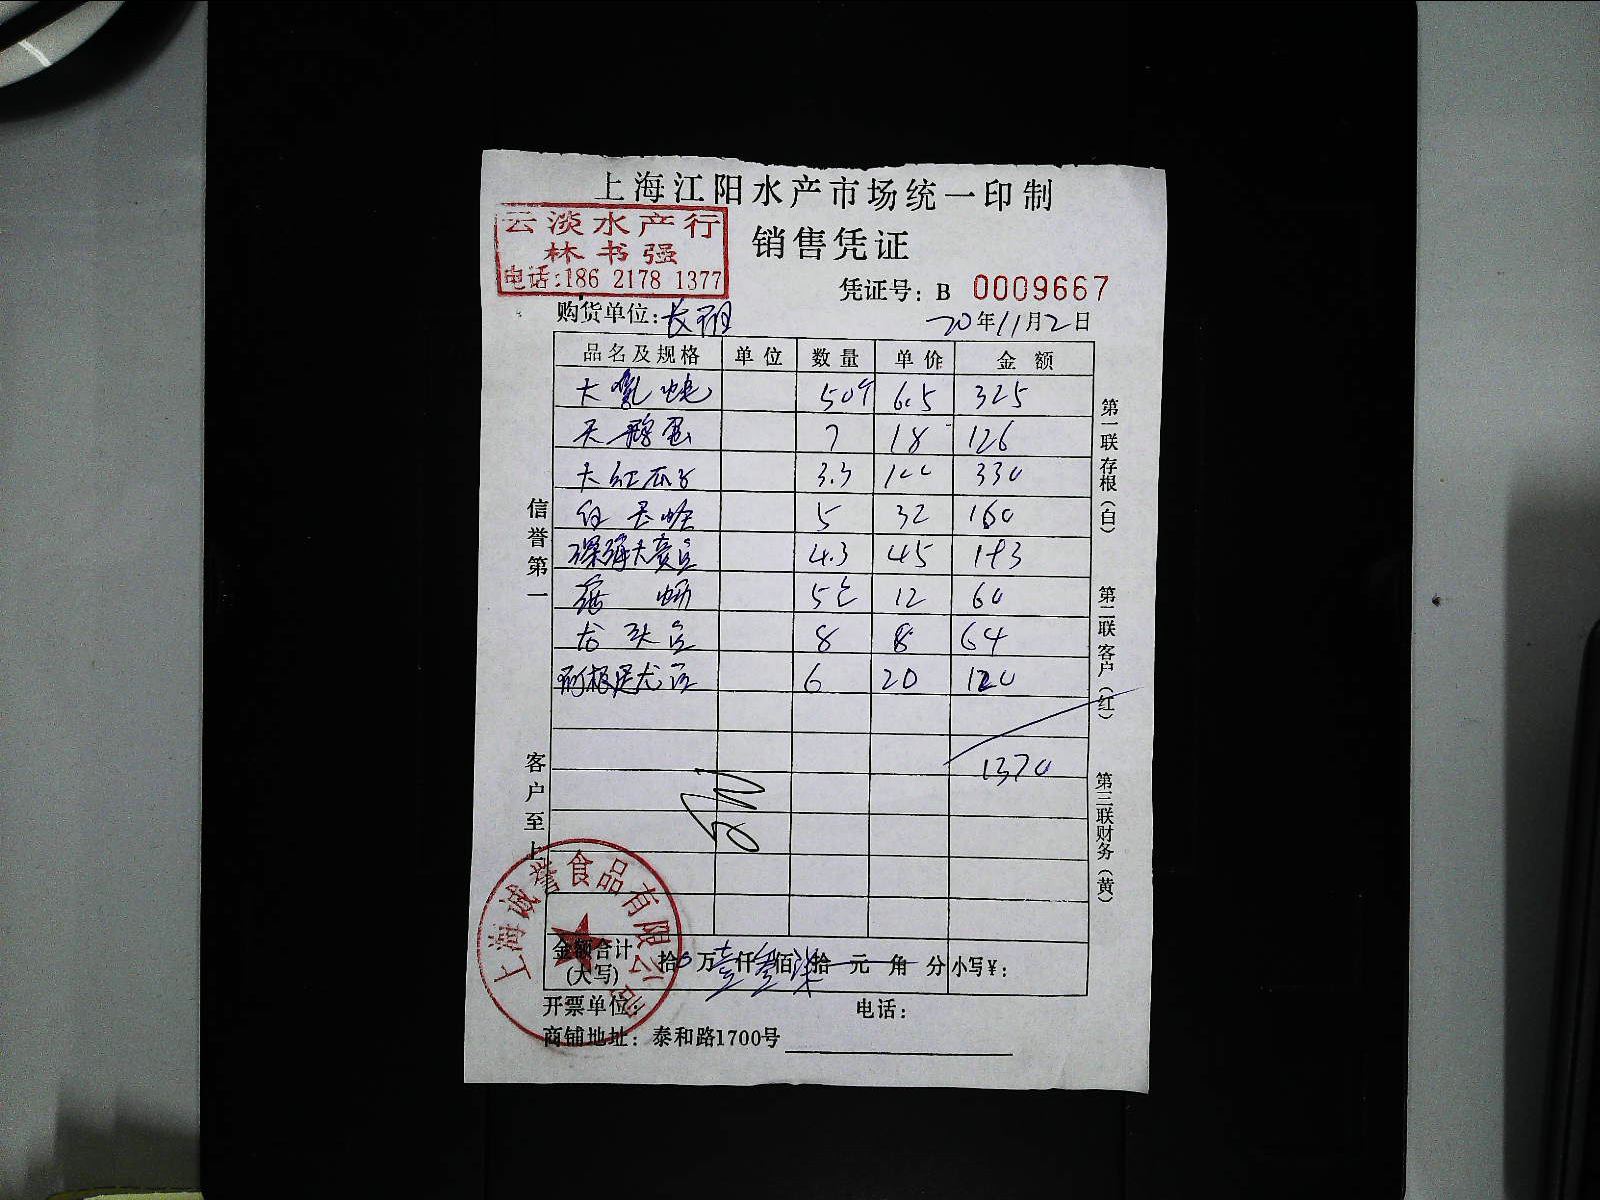 上海江阳水产市场统一印制
云淡水产行
林书强
电话:186 2178 1377
销售凭证
凭证号: B 0009667
购货单位:
20年11月2日
品名及规格 单位 数量 单价 金额
大乳蛏 50个 6.5 325
天鹅蛋 7 18 126
大红瓜子 3.3 100 330
5 32 160
深海大 4.3 45 193
12 60
龙头 8 8 64
6 20 120
1370
信誉第一
客户至上
第一联存根(白)
第二联客户(红)
第三联财务(黄)
上海诚誉食品有限公司
金额合计(大写) 拾 万壹仟叁佰柒拾元角分 小写¥:
开票单位: 电话:
商铺地址: 泰和路1700号